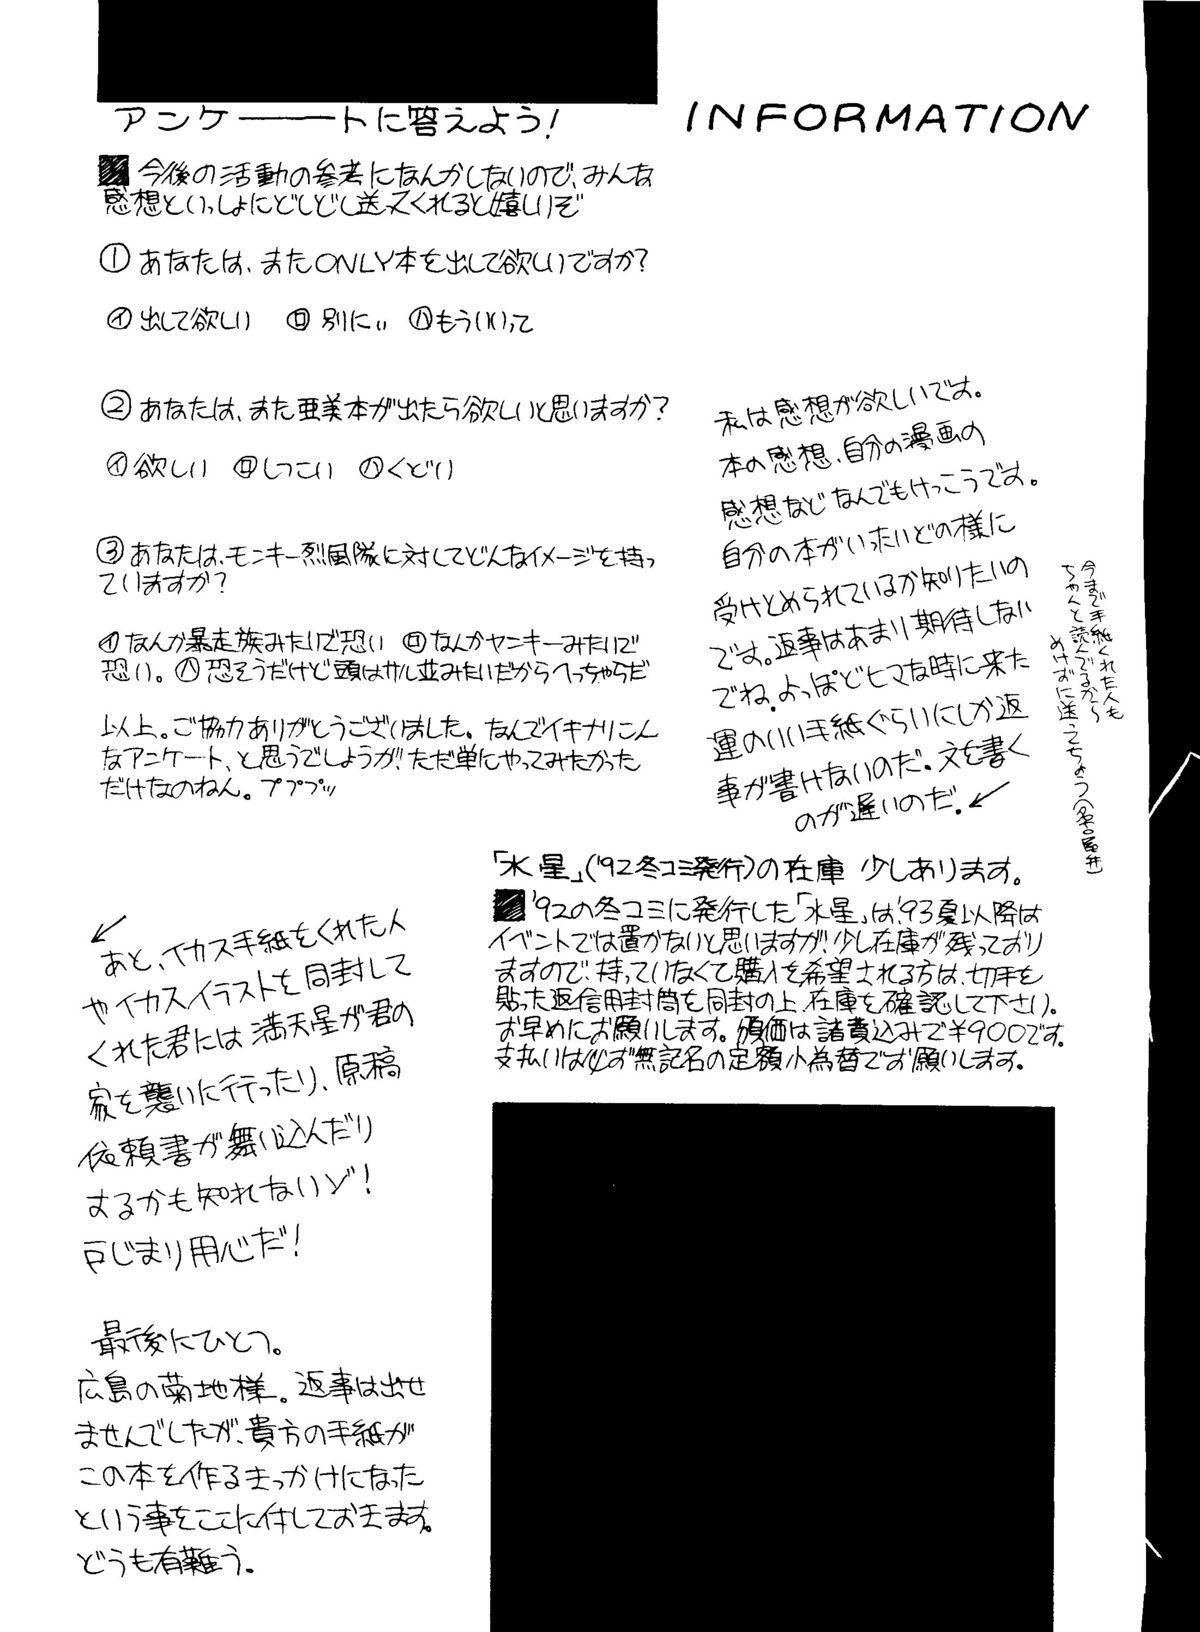 アンケ――トに答えよう!
INFORMATION
今後の活動の参考になんかしないので、みんな
感想といっしょにどしどし送ってくれると嬉しいぞ
①あなたは、またONLY本を出して欲しいですか?
㋑出して欲しい ㋺別にぃ ㋩もういいって
②あなたは、また亜美本が出たら欲しいと思いますか?
㋑欲しい ㋺しつこい ㋩くどい
③あなたは、モンキー烈風隊に対してどんなイメージを持っ
ていますか?
㋑なんか暴走族みたいで恐い ㋺なんかヤンキーみたいで
恐い。㋩恐そうだけど頭はサル並みたいだからへっちゃらだ
以上。ご協力ありがとうございました。なんでイキナリこん
なアンケート、と思うでしょうが、ただ単にやってみたかった
だけなのねん。プププッ
私は感想が欲しいです。
本の感想、自分の漫画の
感想などなんでもけっこうです。
自分の本がいったいどの様に
受けとめられているか知りたいの
です。返事はあまり期待しない
でね。よっぽどヒマな時に来た
運のいい手紙ぐらいにしか返
事が書けないのだ。文を書く
のが遅いのだ。↙
今まで手紙くれた人も
ちゃんと読んでるから
めげずに送ってちょう(名古屋弁)
「水星」('92冬コミ発行)の在庫 少しあります。
'92の冬コミに発行した「水星」は、'93夏以降は
イベントでは置かないと思いますが、少し在庫が残っており
ますので、持っていなくて購入を希望される方は、切手を
貼った返信用封筒を同封の上、在庫を確認して下さい。
お早めにお願いします。頒価は諸費込みで¥900です。
支払いは必ず無記名の定額小為替でお願いします。
↙
あと、イカス手紙をくれた人
やイカスイラストを同封して
くれた君には満天星が君の
家を襲いに行ったり、原稿
依頼書が舞い込んだり
するかも知れないゾ!
戸じまり用心だ!
最後にひとつ。
広島の菊地様。返事は出せ
ませんでしたが、貴方の手紙が
この本を作るきっかけになった
という事をここに付しておきます。
どうも有難う。